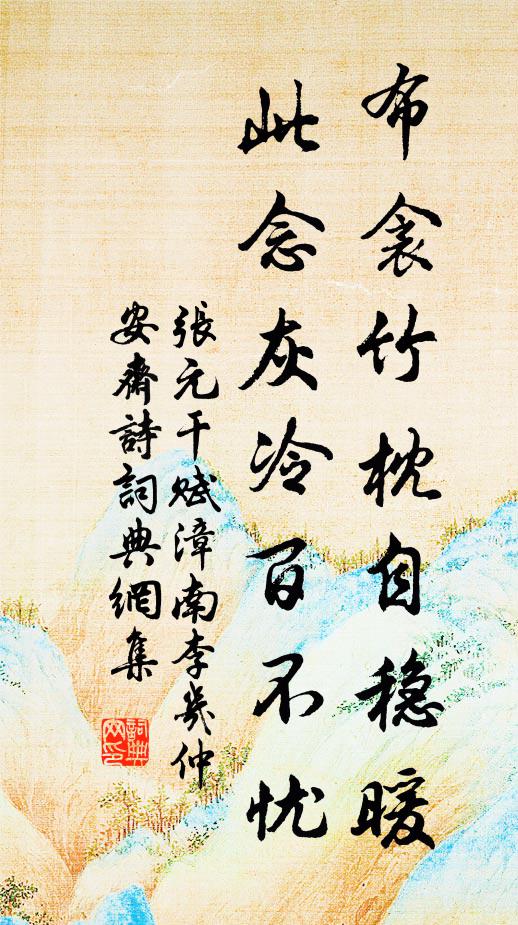 布衾竹枕自稳暖
此念灰冷百不忧
張元干赋漳南李幾仲
安齋詩詞典網集
詞典
网印